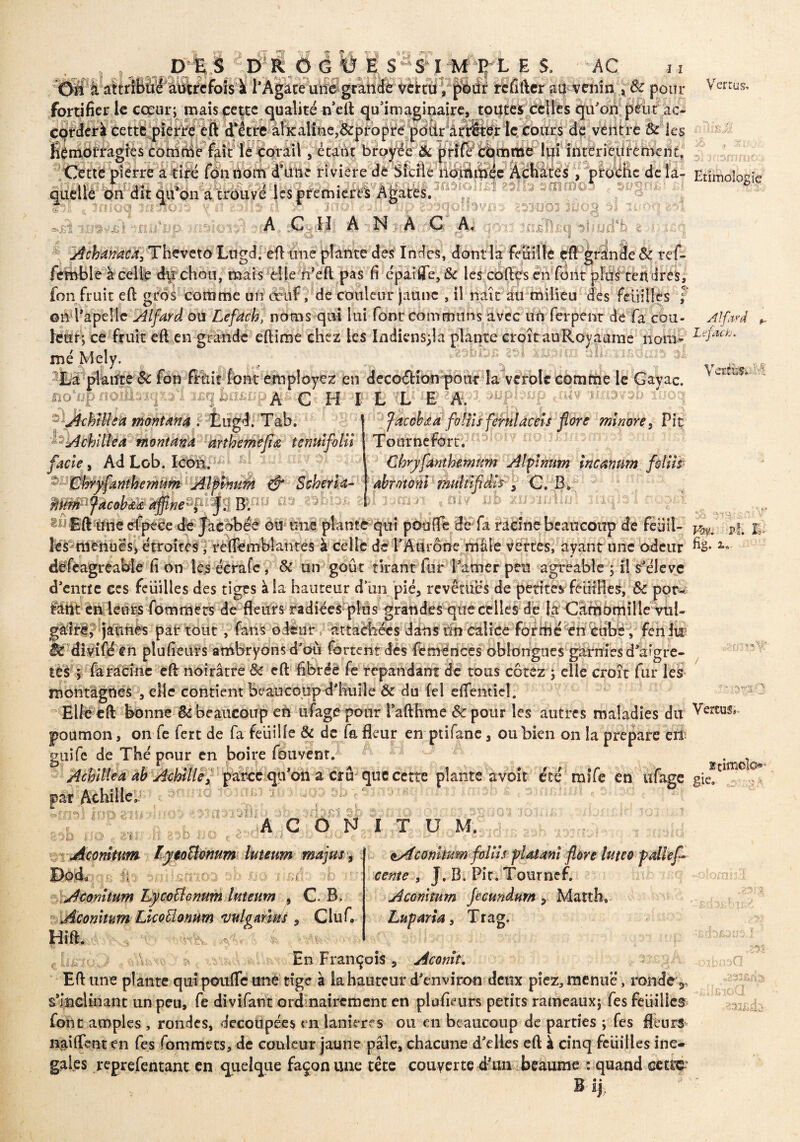 DES DROGUES SIMPLES. AC 11
On a attribué autrefois à l'Agate une grande vertu, pour résister au venin, & pour
fortifier le cœur; mais cette qualité n'est qu'imaginaire, toutes celles qu'on peut ac-
corder à cette pierre est d'être alkaline, & propre pour arrêter le cours de ventre & les
hémorragies comme fait le corail, étant broyée & prise comme lui interieurement.
Cette pierre a tiré son nom d'une riviere de Sicile nommée Achates, proche de la-
quelle on dit qu'on a trouvé les premieres Agates.
Vertus.
Etimologie
ACHANACA.
Achanaca, Theveto Lugd. est une plante des Indes, dont la feüille est grande & res-
semble à celle du chou, mais elle n'est pas si épaisse, & les costes en sont plus tendres,
son fruit est gros comme un œuf, de couleur jaune, il naît au milieu des feüilles;
on l'apelle Alfard ou Lefach, noms qui lui sont communs avec un serpent de sa cou-
leur; ce fruit est en grande estime chez les Indiens; la plante croît au Royaume nom-
mé Mely.
La plante & son fruit sont employez en decoction pour la verole comme le Gayac.
Alfard
Lefach.
Vertus.
ACHILLEA.
Achillea montana. Lugd. Tab.
Achillea montana arthemesiæ tenuifolii
facie, Ad Lob. Icon.
Chrysanthemum Alpinum & Scheria-
num Jacobææ affine, J. B.
Jacobæa foliis ferulaceis flore minore, Pit
Tournefort.
Chrysanthemum Alpinum incanum foliis
abrotoni multifidis, C. B.
Est une espece de Jacobée ou une plante qui pousse de sa racine beaucoup de feüil-
les menuës, étroites, ressemblantes à celle de l'Aurône mâle vertes, ayant une odeur
desagreable si on les écrase, & un goût tirant sur l'amer peu agreable; il s'éleve
d'entre ces feüilles des tiges à la hauteur d'un pié, revêtuës de petites feüilles, & por-
tant en leurs sommets de fleurs radiées plus grandes que celles de la Camomille vul-
gaire, jaunes par tout, sans odeur attachées dans un calice formé en cube, fendu
& divisé en plusieurs ambryons d'où sortent des semences oblongues garnies d'aigre-
tes; sa racine est noirâtre & est fibrée se repandant de tous côtez; elle croît sur les
montagnes, elle contient beaucoup d'huile & du sel essentiel.
Elle est bonne & beaucoup en usage pour l'asthme & pour les autres maladies du
poumon, on se sert de sa feüille & de sa fleur en ptisane, ou bien on la prepare en
guise de Thé pour en boire souvent.
Achillea ab Achille, parce qu'on a crû que cette plante avoit été mise en usage
par Achille.
pl. I.
fig. 2.
Vertus.
Etimolo-
gie.
ACONITUM.
Aconitum Lycoctonum luteum majus,
Dod.
Aconitum Lycoctonum luteum, C. B.
Aconitum Licoctonum vulgarius, Clus.
Hist.
Aconitum foliis platani flore luteo palles-
cente, J. B. Pit. Tournef.
Aconitum secundum, Matth.
Luparia, Trag.
En François, Aconit.
Est une plante qui pousse une tige à la hauteur d'environ deux piez, menuë, ronde,
s'inclinant un peu, se divisant ordinairement en plusieurs petits rameaux; ses feüilles
sont amples, rondes, decoupées en lanieres ou en beaucoup de parties; ses fleurs
naissent en ses sommets, de couleur jaune pâle, chacune d'elles est à cinq feüilles ine-
gales representant en quelque façon une tête couverte d'un heaume: quand cette
B ij